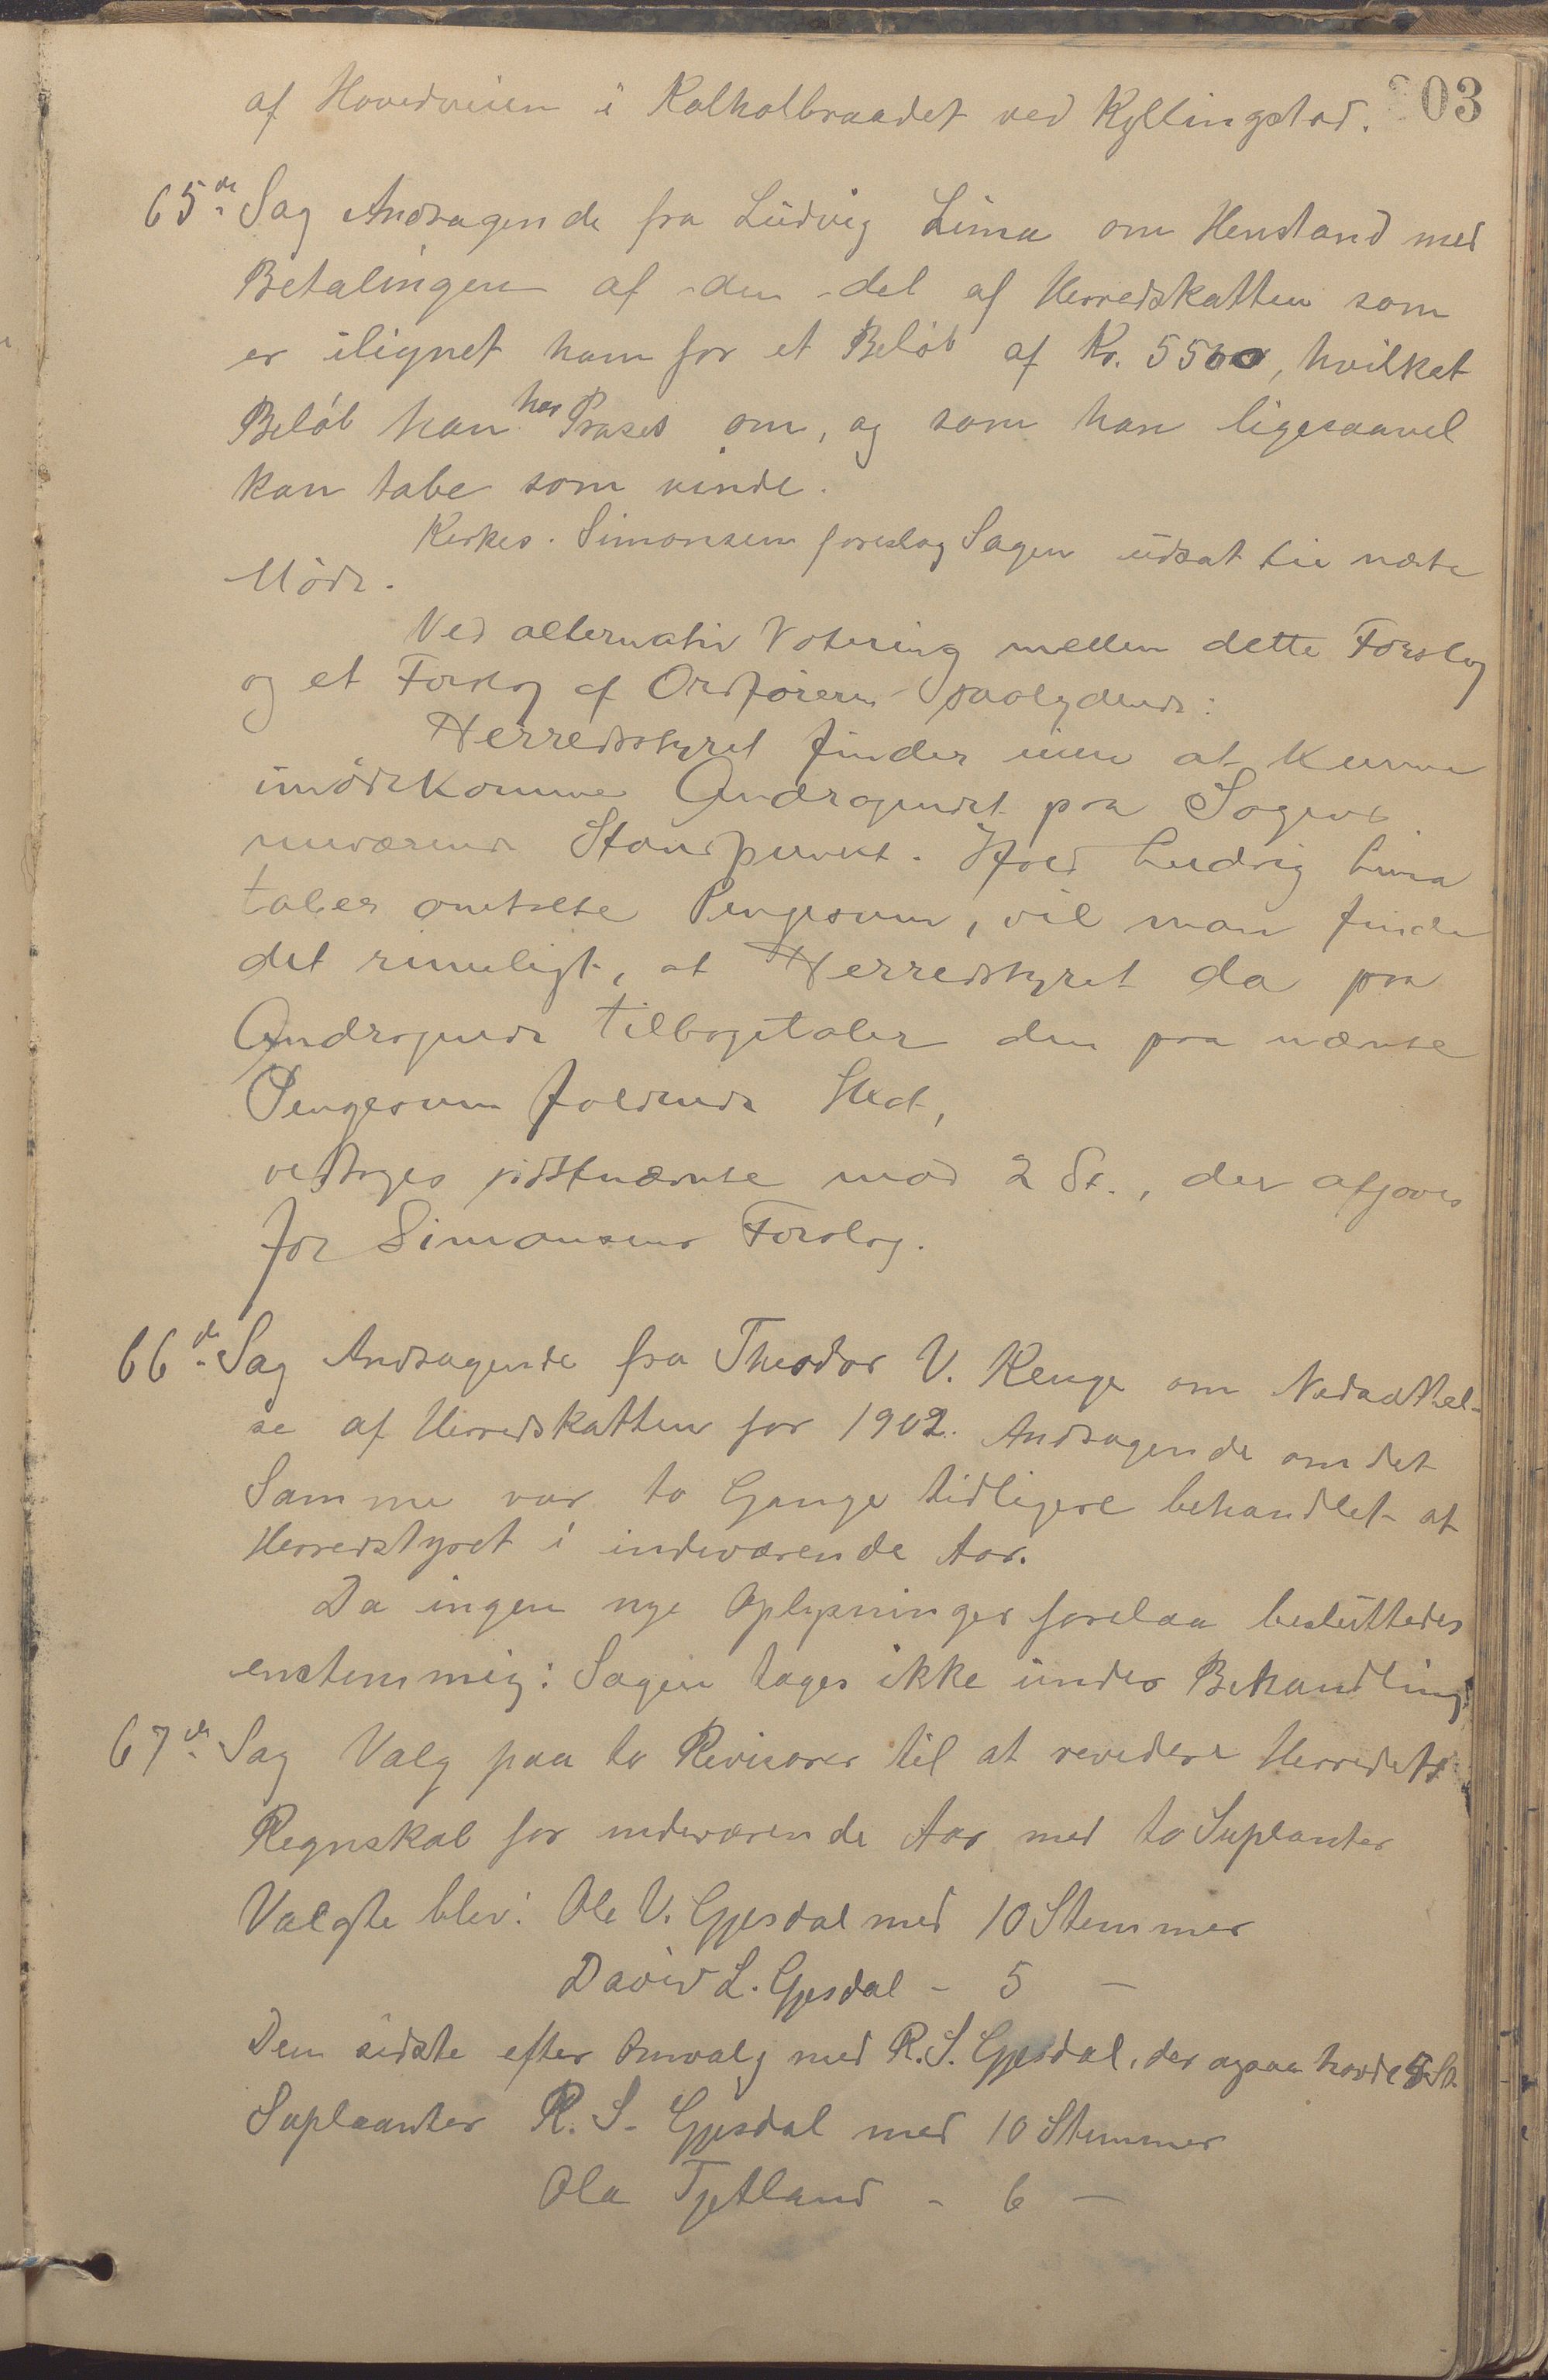 03
af Hovedveien i Kalholbraadet ved Kyllingstad.
65de Sag Andragende fra Ludvig Lima om Henstand med
Betalingen af den del af Herredskatten som
er ilignet ham for et Beløb af Kr. 5500, hvilket
Beløb han har Proses om, og som han ligesaavel
kan tabe som vinde.
Kirkes. Simonsen foreslog Sagen udsat til næste
Møde.
Ved alternativ Votering mellem dette Forslag
og et Forslag af Ordføreren saalydende:
Herredsstyret finder ikke at kunne
imødekomme Andragendet paa Sagens
nuværende Standpunkt. Ifald Ludvig Lima
taber omtalte Pengesum, vil man finde
det rimeligt, at Herredstyret da paa
Andragende tilbagetaler den paa nævnte
Pengesum faldende Skat,
vedtoges sidstnævnte mod 2 St., der afgaves
for Simonsens Forslag.
66de Sag Andragende fra Theodor V. Kenge om Nedsættel-
se af Herredskatten for 1902. Andragende om det
Samme var to Gange tidligere behandlet af
Herredstyret i indeværende Aar.
Da ingen nye Oplysninger forelaa besluttedes
enstemmig: Sagen tages ikke under Behandling.
67de Sag Valg paa to Revisorer til at revidere Herredets
Regnskab for indeværende Aar med to Suplanter
Valgte blev: Ole V. Gjesdal med 10 Stemmer
David L. Gjesdal - 5 -
Den sidste efter Omvalg med R. S. Gjesdal, der ogsaa havde 5 St.
Suplanter R. S. Gjesdal med 10 Stemmer
Ola Tjetland - 6 -